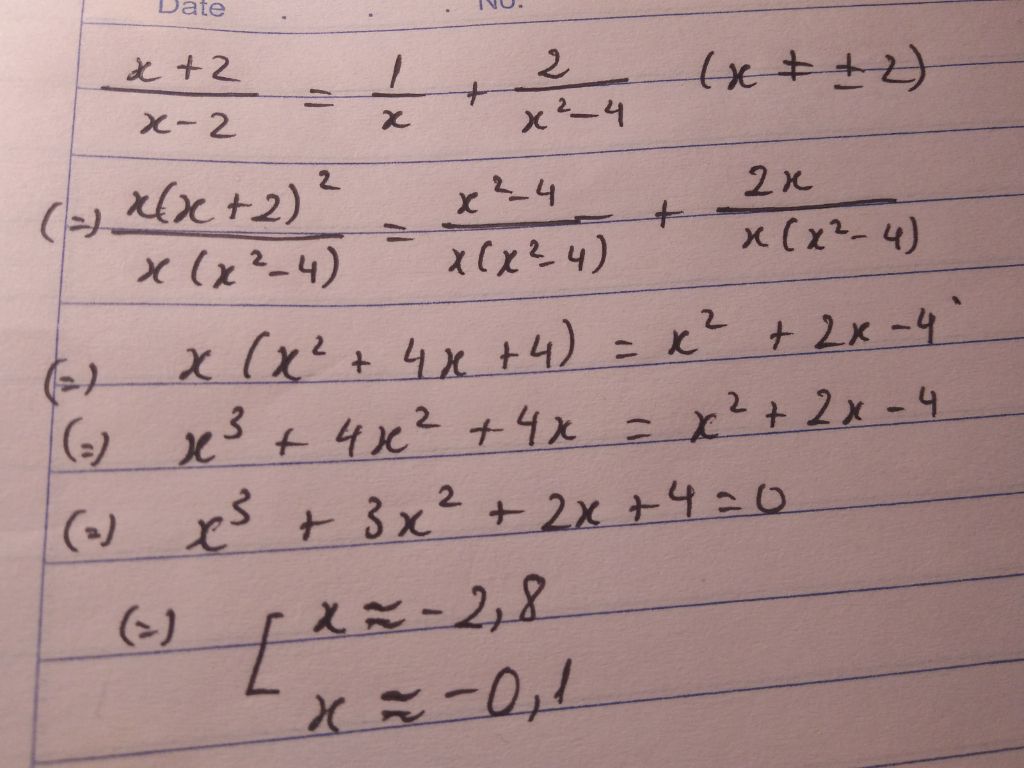 Date . . . No.
x + 2 / x - 2 = 1 / x + 2 / x² - 4 (x ≠ ± 2)
(=) x(x + 2)² / x (x² - 4) = x² - 4 / x(x² - 4) + 2x / x(x² - 4)
(=) x (x² + 4x + 4) = x² + 2x - 4
(=) x³ + 4x² + 4x = x² + 2x - 4
(=) x³ + 3x² + 2x + 4 = 0
(=) [ x ≈ -2,8
x ≈ -0,1